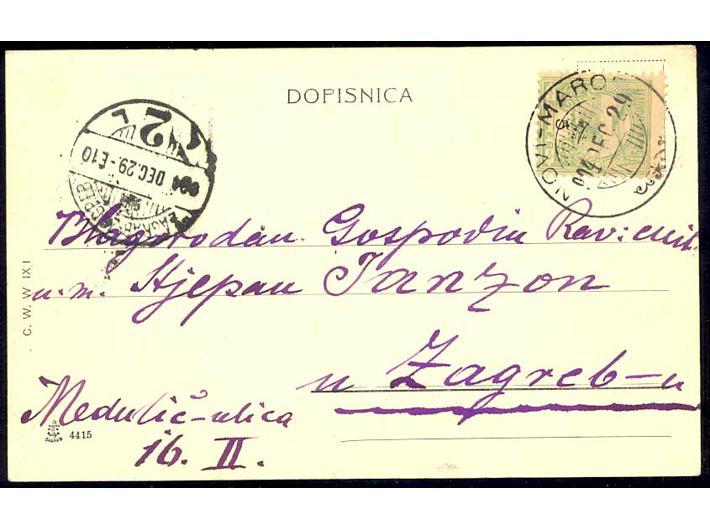 DOPISNICA
NOVI-MAROF
904 DEC 29
2
904 DEC. 29 - E10
ZÁGRÁB
Blagorodan Gospodin Rav: emit.
u. m. Stjepan Janzon
u Zagreb-u
Medulić-ulica
16. II.
C. W. W IX I
4415